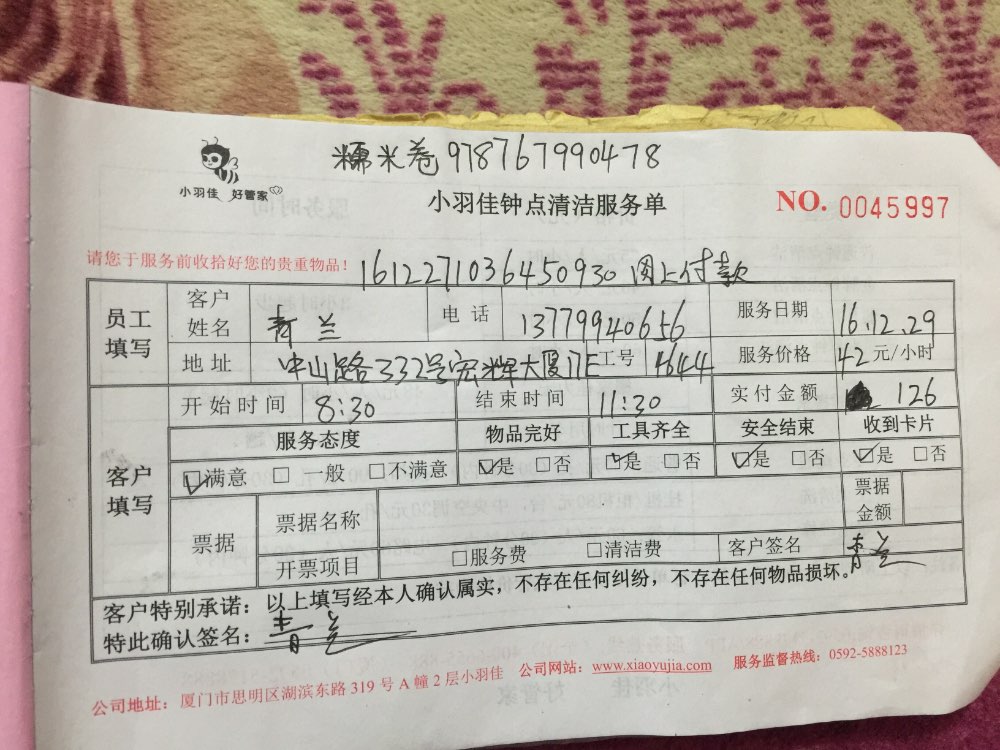 糯米卷978767990478
小羽佳 好管家
小羽佳钟点清洁服务单
NO. 0045997
请您于服务前收拾好您的贵重物品!
1612271036450930 网上付款
员工填写 客户姓名 青兰 电话 13779940656 服务日期 16.12.29
地址 中山路332号宏辉大厦17E 工号 4644 服务价格 42元/小时
客户填写 开始时间 8:30 结束时间 11:30 实付金额 126
服务态度 物品完好 工具齐全 安全结束 收到卡片
☑满意 □一般 □不满意 ☑是 □否 ☑是 □否 ☑是 □否 ☑是 □否
票据 票据名称 票据金额
开票项目 □服务费 □清洁费 客户签名 青兰
客户特别承诺:以上填写经本人确认属实,不存在任何纠纷,不存在任何物品损坏。
特此确认签名:青兰
公司地址:厦门市思明区湖滨东路319号A幢2层小羽佳 公司网站:www.xiaoyujia.com 服务监督热线:0592-5888123